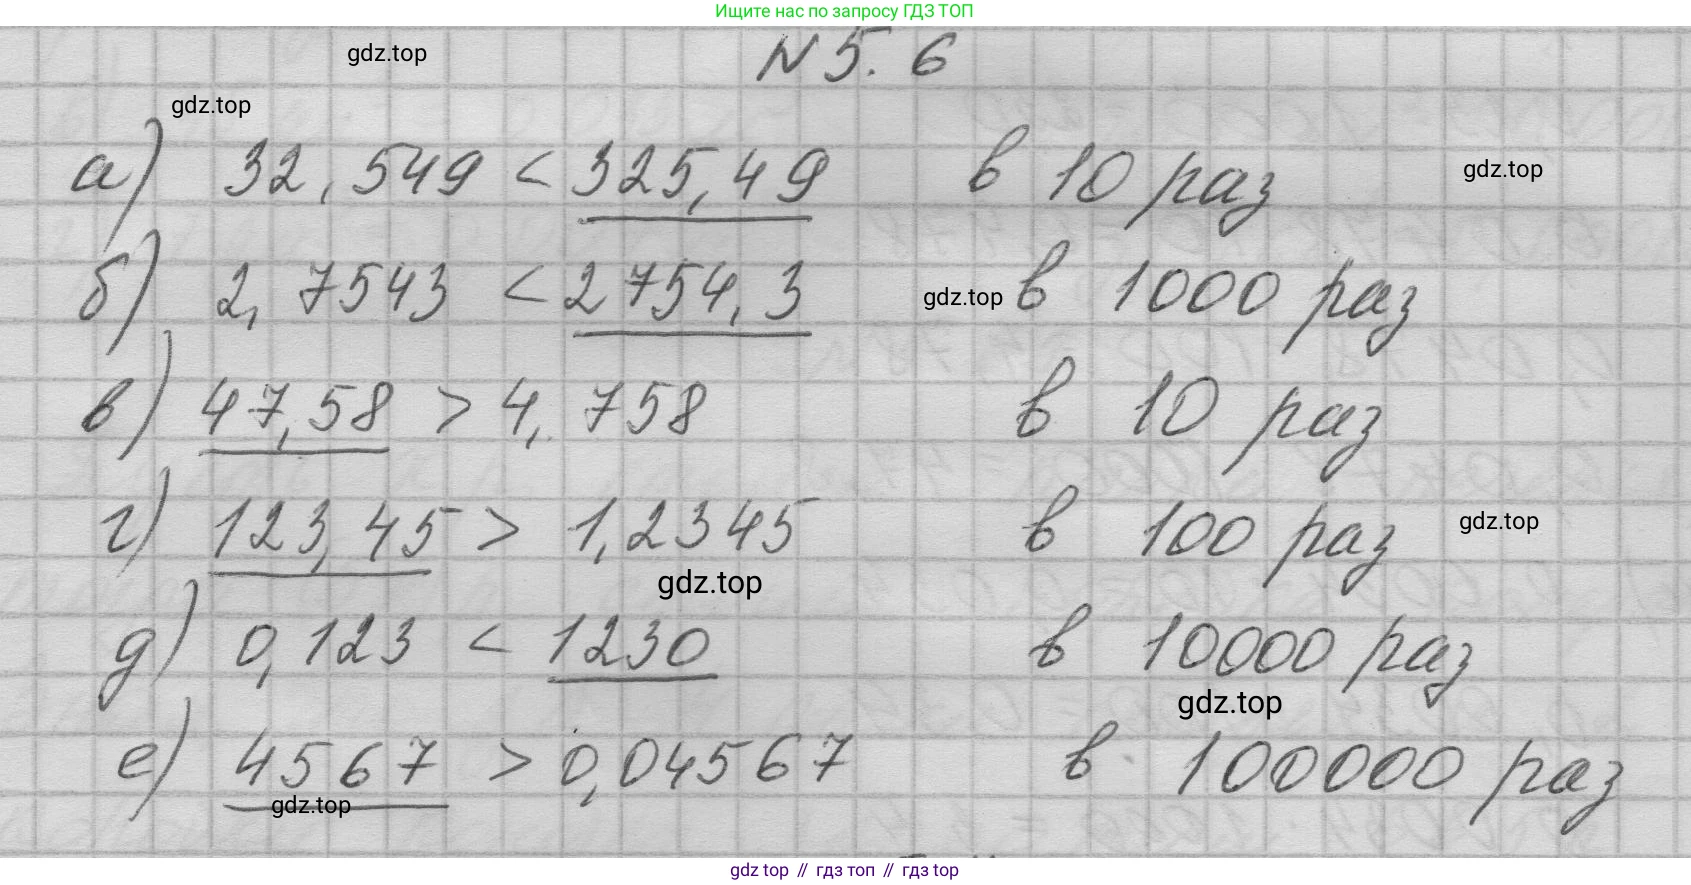 Ищите нас по запросу ГДЗ ТОП
N 5. 6
gdz.top
gdz.top
а) 32,549 < 325,49 в 10 раз
gdz.top
б) 2,7543 < 2754,3 gdz.top в 1000 раз
в) 47,58 > 4,758 в 10 раз
г) 123,45 > 1,2345 в 100 раз
gdz.top
gdz.top
д) 0,123 < 1230 в 10000 раз
gdz.top
е) 4567 > 0,04567 в 100000 раз
gdz.top
gdz top // гдз топ // гдз top